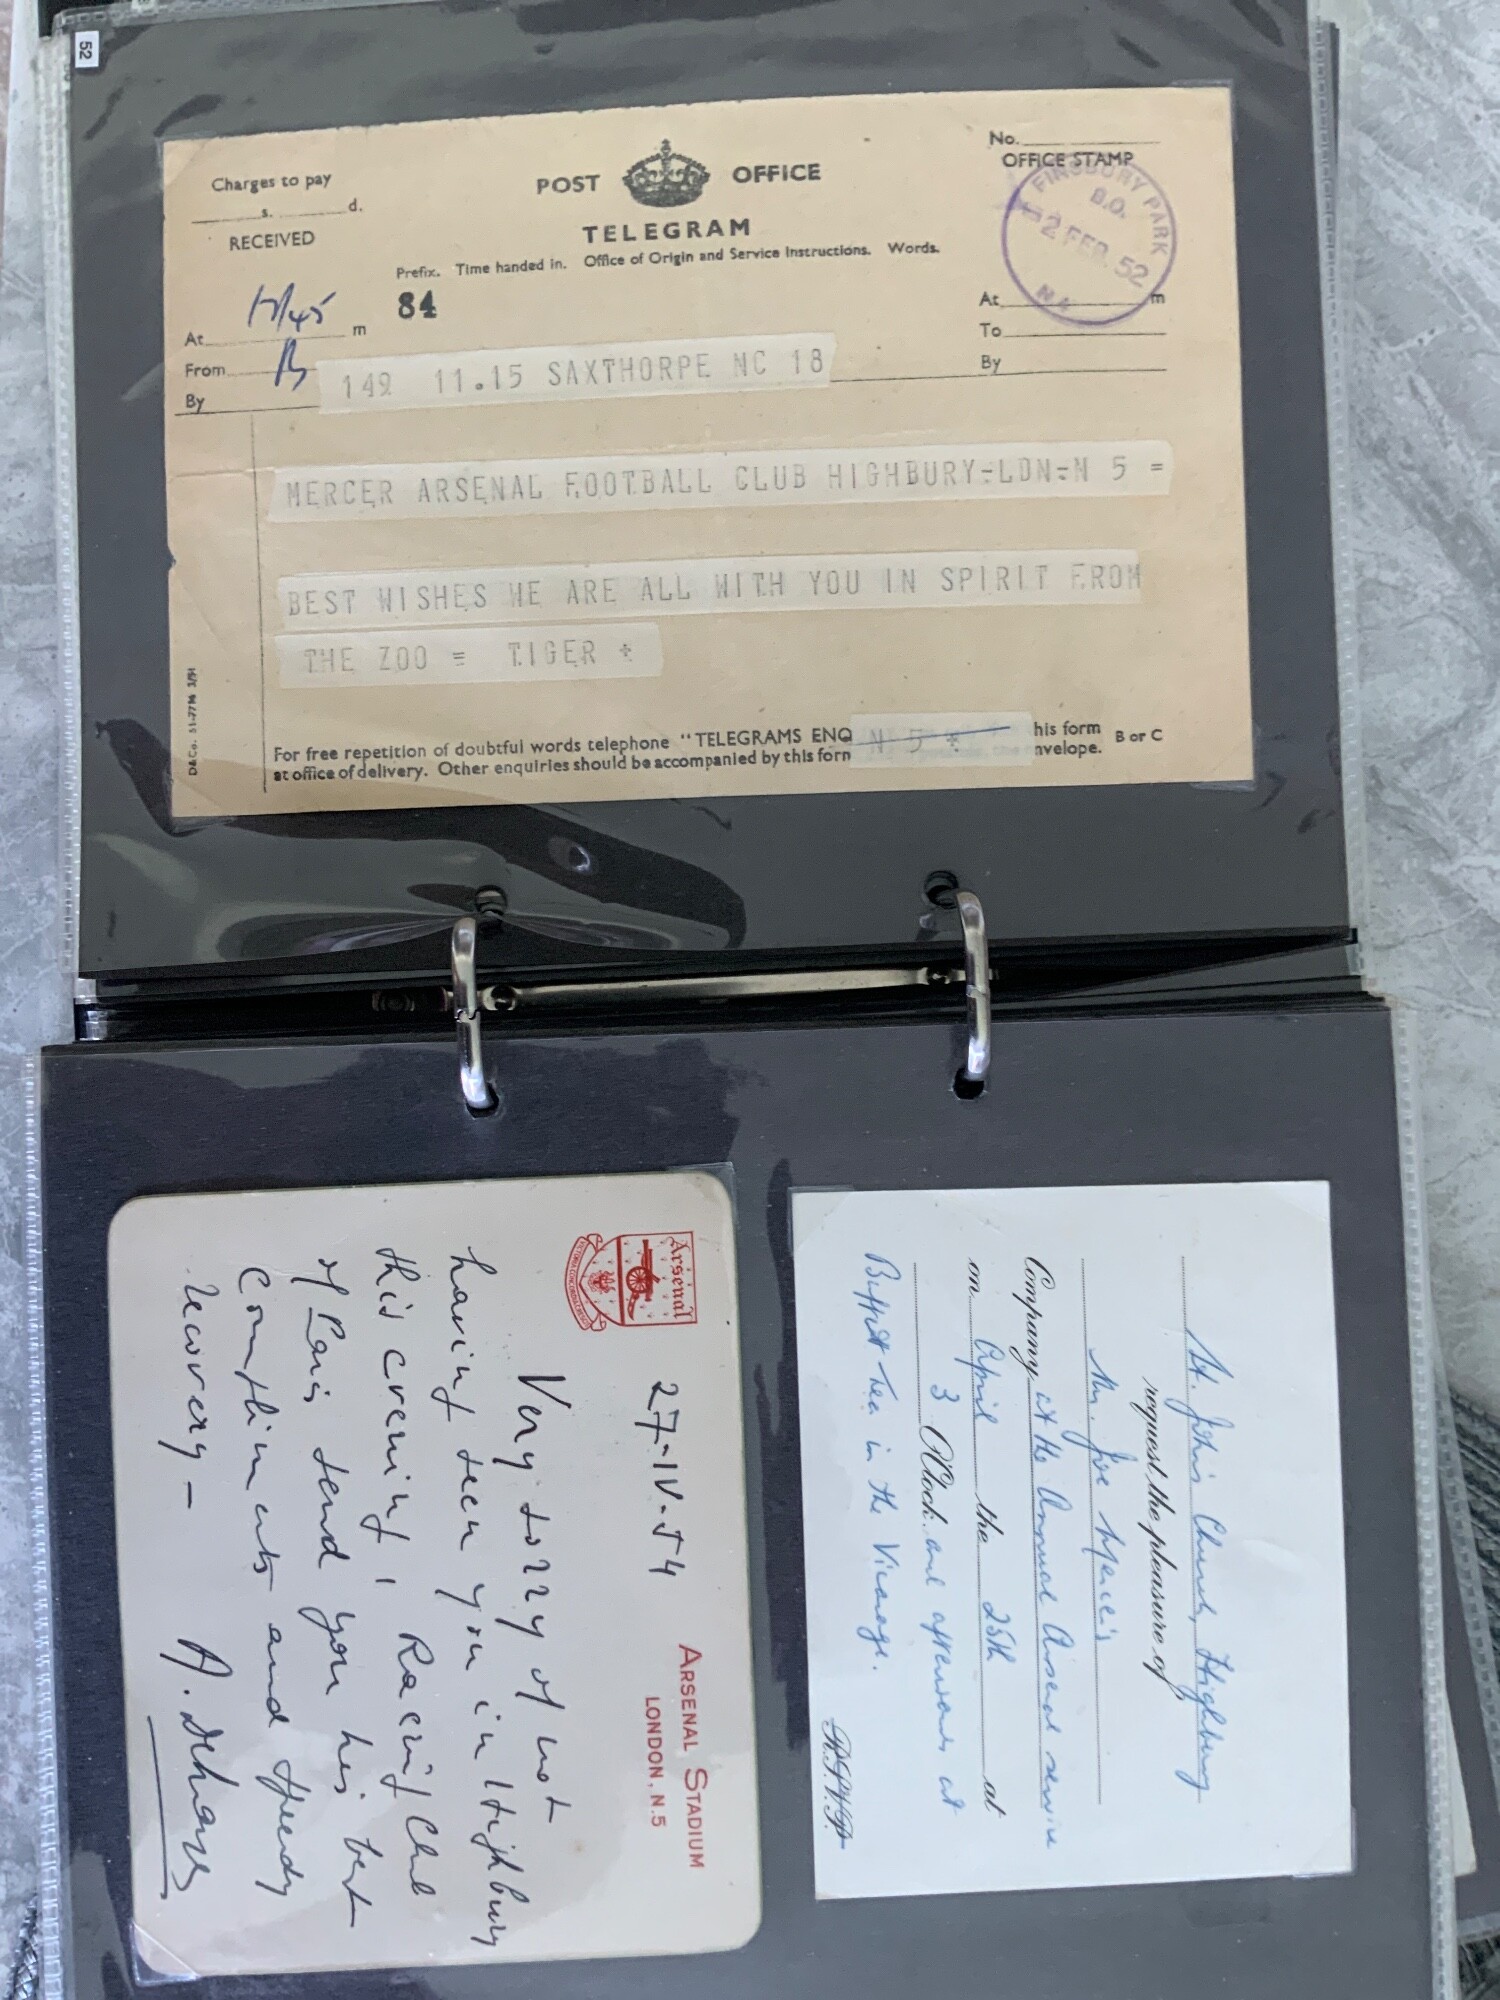 52
Charges to pay
s. d.
RECEIVED
POST OFFICE
TELEGRAM
Prefix. Time handed in. Office of Origin and Service Instructions. Words.
84
No.
OFFICE STAMP
FINSBURY PARK
B.O.
2 FEB. 52
N4
At m
From B
By
At m
To
By
149 11.15 SAXTHORPE NC 18
MERCER ARSENAL FOOTBALL CLUB HIGHBURY-LDN-N 5 =
BEST WISHES WE ARE ALL WITH YOU IN SPIRIT FROM
THE ZOO = TIGER +
For free repetition of doubtful words telephone "TELEGRAMS ENQ N 5 + his form
at office of delivery. Other enquiries should be accompanied by this form nvelope.
B or C
D&Co. 51-7798 3/51
St. John's Church, Highbury
request the pleasure of
Mr. Joe
Company at the Annual Arsenal service
on April the 25th at
3 O'Clock. and afterwards at
Buffet-tea in the Vicarage.
R.S.V.P.
Arsenal
VICTORIA CONCORDIA CRESCIT
ARSENAL STADIUM
LONDON. N.5
27-IV-54
Very sorry of not
having seen you in Highbury
this evening, Racing Club
of Paris send you his best
compliments and speedy
recovery -